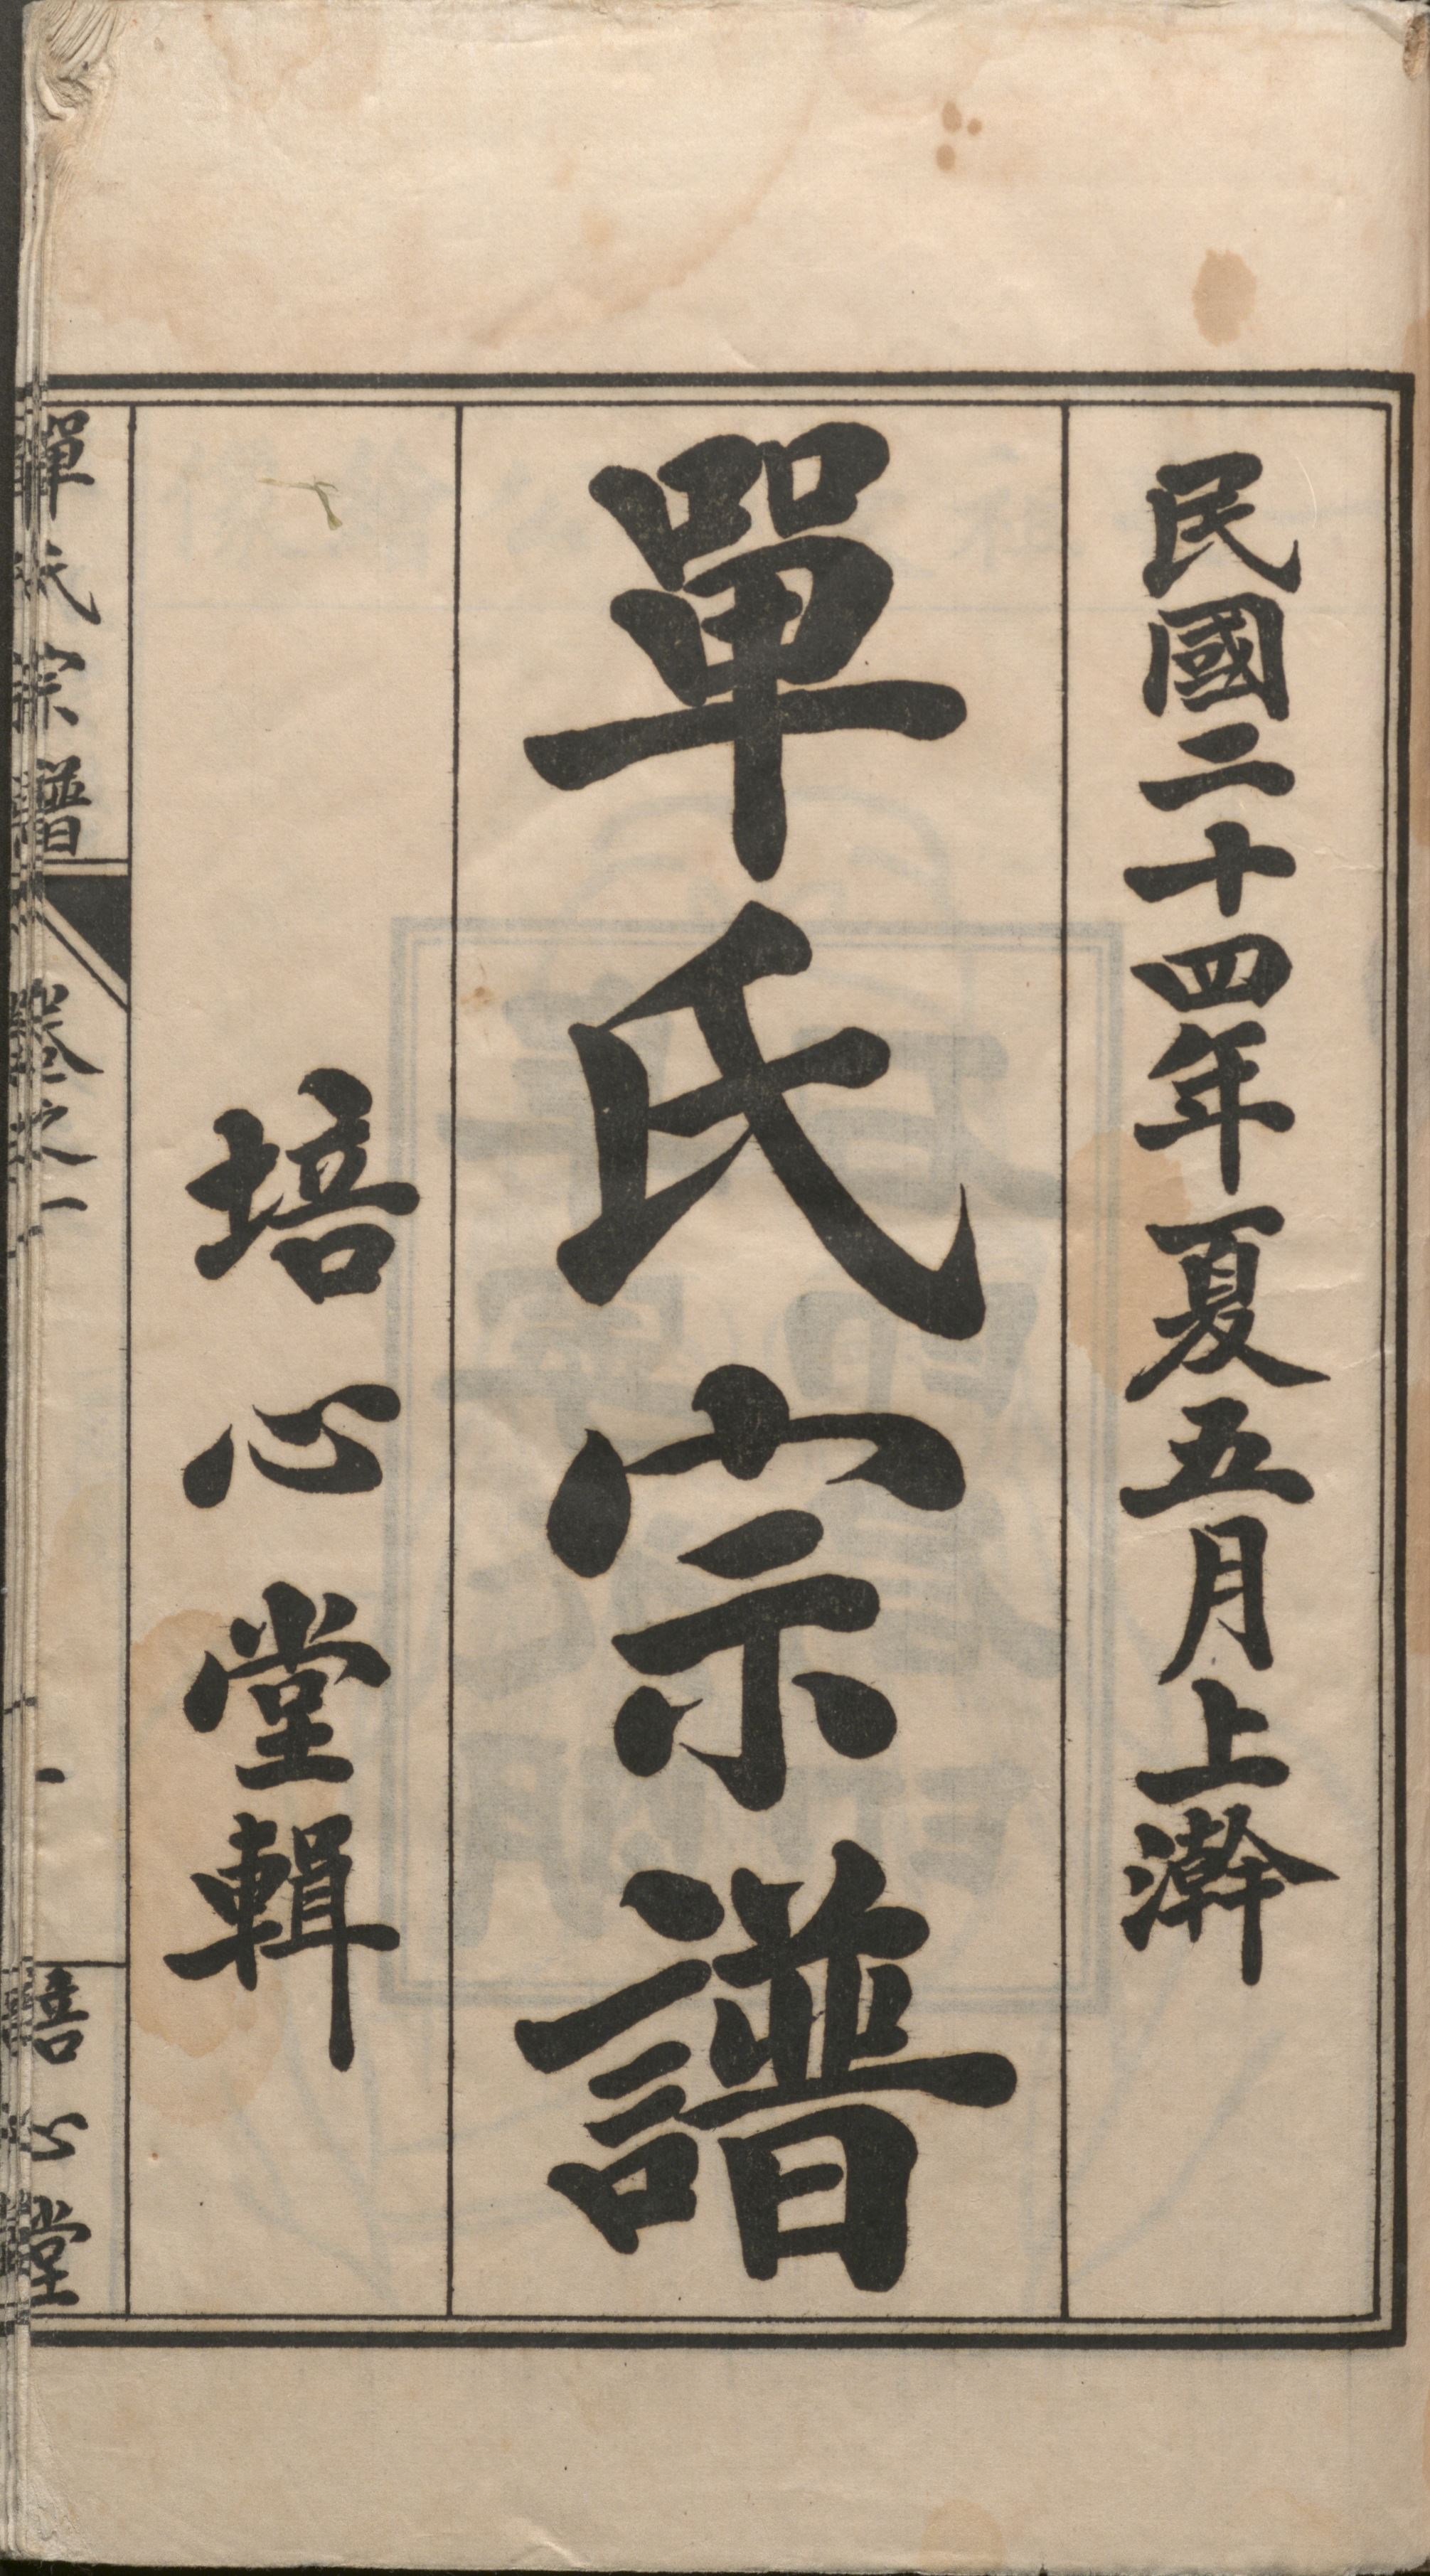 民國二十四年夏五月上澣
單氏宗譜
培心堂輯
單氏宗譜
卷之一
一
培心堂